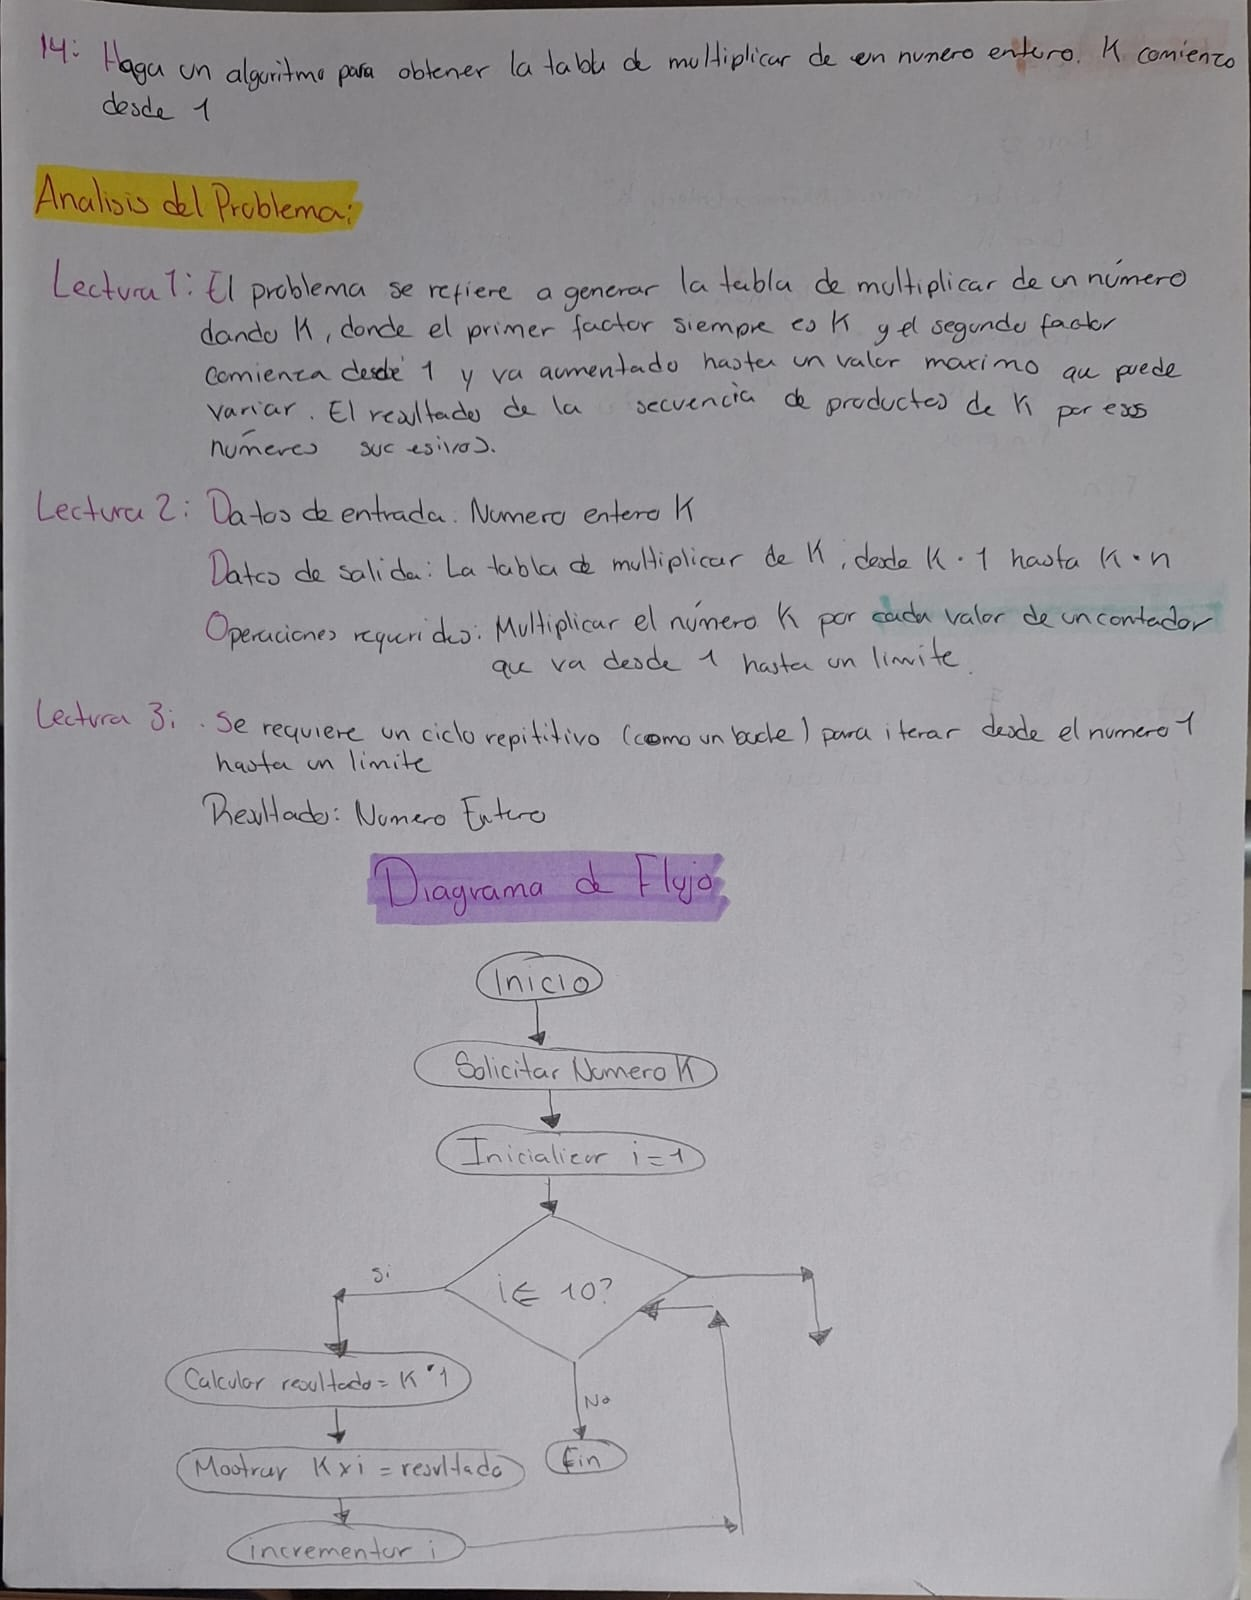 14: Haga un algoritmo para obtener la tabla de multiplicar de un numero entero. K comienzo
desde 1
Analisis del Problema:
Lectura 1: El problema se refiere a generar la tabla de multiplicar de un número
dando K, donde el primer factor siempre es K y el segundo factor
comienza desde 1 y va aumentado hasta un valor maximo que puede
variar. El resultado de la secuencia de productos de K por esos
números sucesivos.
Lectura 2: Datos de entrada. Numero entero K
Datos de salida: La tabla de multiplicar de K, desde K · 1 hasta K · n
Operaciones requeridas: Multiplicar el número K por cada valor de un contador
que va desde 1 hasta un limite.
Lectura 3: . Se requiere un ciclo repititivo (como un bucle) para iterar desde el numero 1
hasta un limite
Resultado: Numero Entero
Diagrama de Flujo
Inicio
Solicitar Numero K
Inicializar i = 1
Si
i ≤ 10?
Calcular resultado = K * 1
No
Mostrar K x i = resultado
Fin
incrementar i